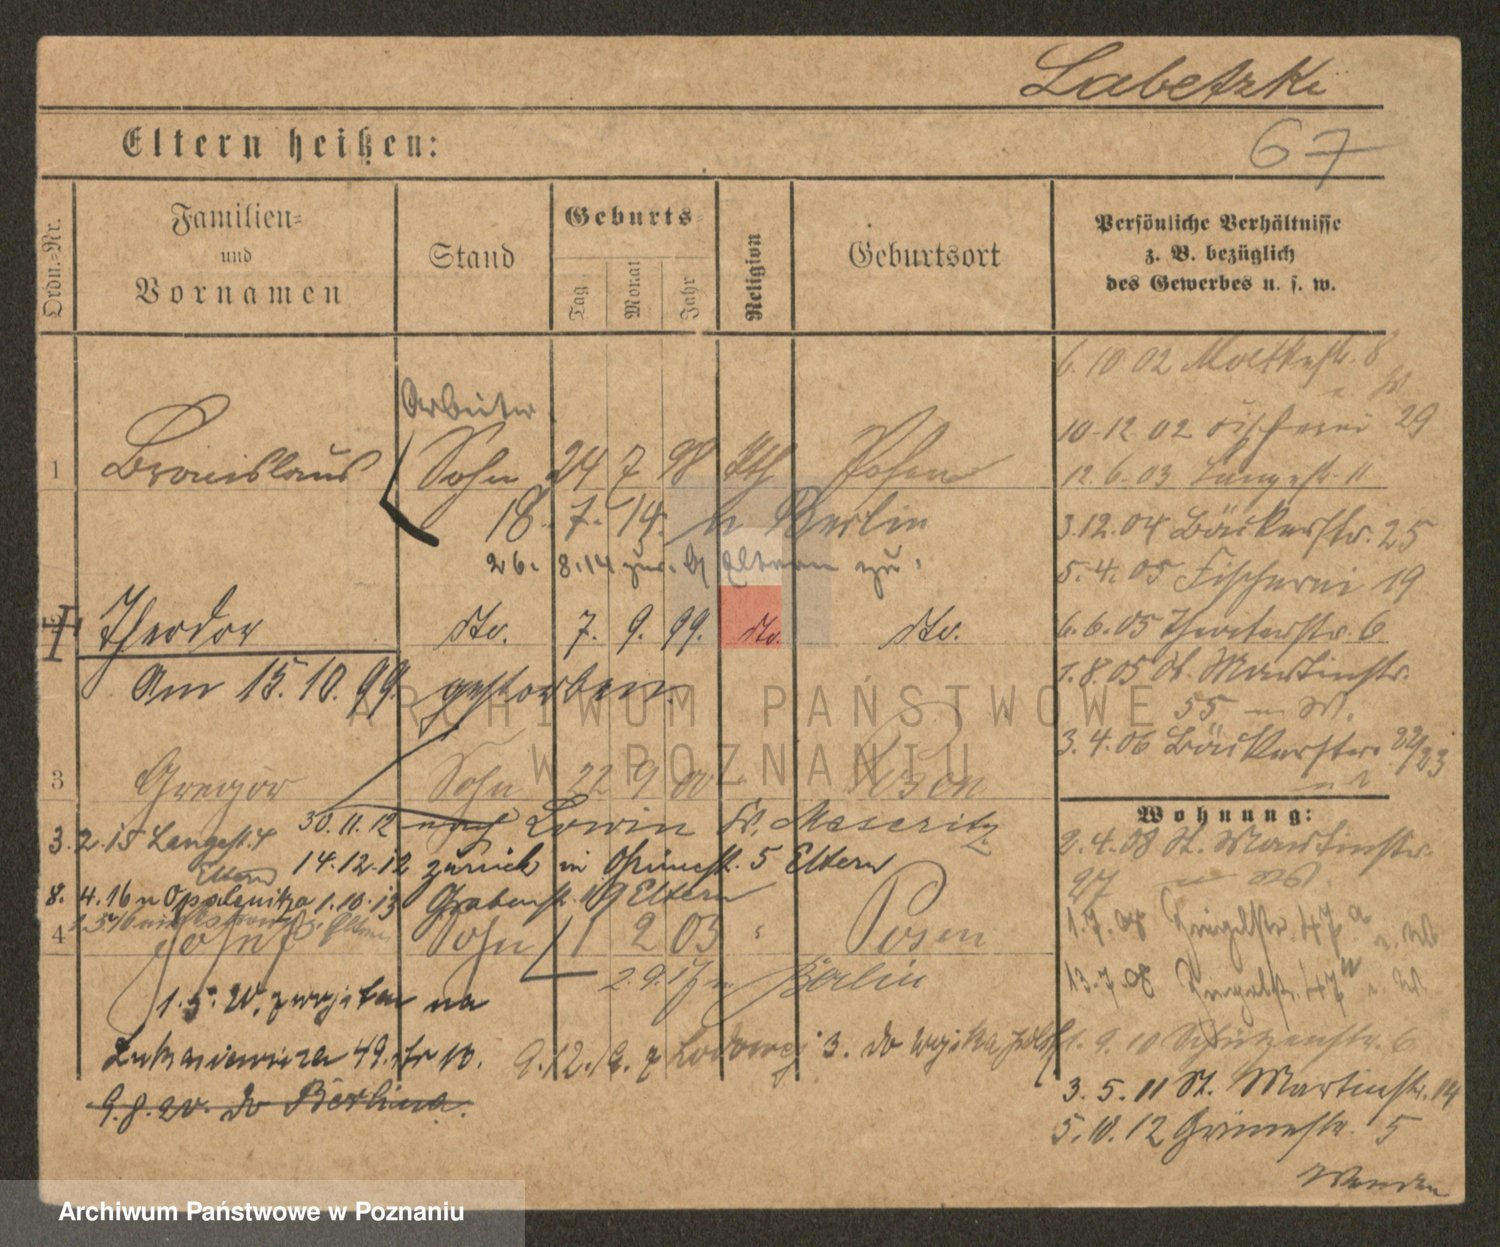 Labetzki
67
Eltern heißen:
Ordn.-Nr.
Familien-
und
Vornamen
Stand
Geburts-
Tag
Monat
Jahr
Religion
Geburtsort
Persönliche Verhältnisse
z. B. bezüglich
des Gewerbes u. s. w.
Arbeiter
1 Bronislaus Sohn 24 7 98 kth Posen
18. 7. 14. n Berlin
26. 8. 14 zur. Eltern zu.
Theodor dto. 7. 9. 99. dto. dto.
Am 15. 10. 99. gestorben.
3 Gregor Sohn 22 9 00 Posen
30. 11. 12 nach Lowin Kr. Meseritz
3. 2. 15 Langestr. 4
14. 12. 12 zurück in Grünestr. 5 Eltern
Eltern
8. 4. 16 n Opalenitza 1. 10. 13 Grabenstr. 19 Eltern
4 Josef Sohn 1 2 03 " Posen
2. 9. 17 n Berlin
1. 5. 20. na
Lukasiewicza 49. 10.
9. 12. z 3. do wojska
9. 8. 20. do Berlina.
6. 10 02 Moltkestr. 8
10. 12 02 Fischerei 29
12. 6. 03 Langestr. 11
3. 12. 04 Bäckerstr. 25
5. 4. 05 Fischerei 19
6. 6. 05 Theaterstr. 6
1. 8. 05 St. Martinstr.
55
3. 4. 06 Bäckerstr. 22/23
Wohnung:
2. 4. 08 St. Martinstr.
27
1. 7. 08 47a
13. 7. 08 47
1. 9. 10 Schützenstr. 6
3. 5. 11 St. Martinstr. 14
5. 10. 12 Grünestr. 5
Wenden
ARCHIWUM PAŃSTWOWE
W POZNANIU
Archiwum Państwowe w Poznaniu